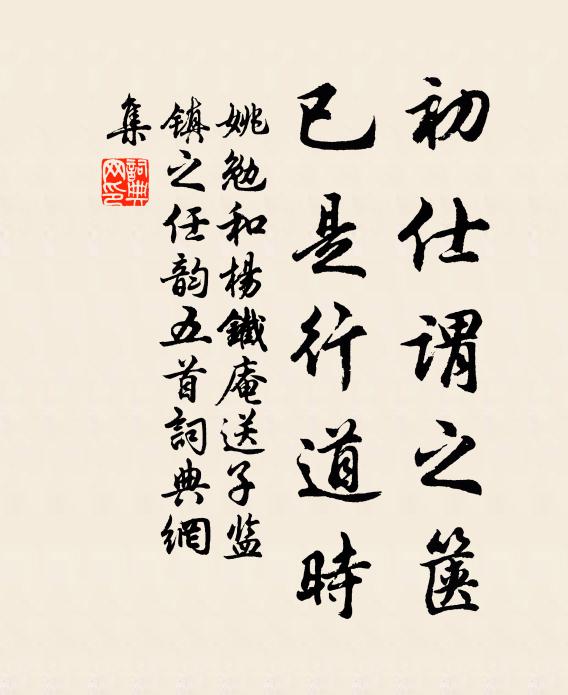 初仕谓之箧
已是行道時
姚勉和楊鐵庵送子监
镇之任韵五首詞典網
集
詞典網印